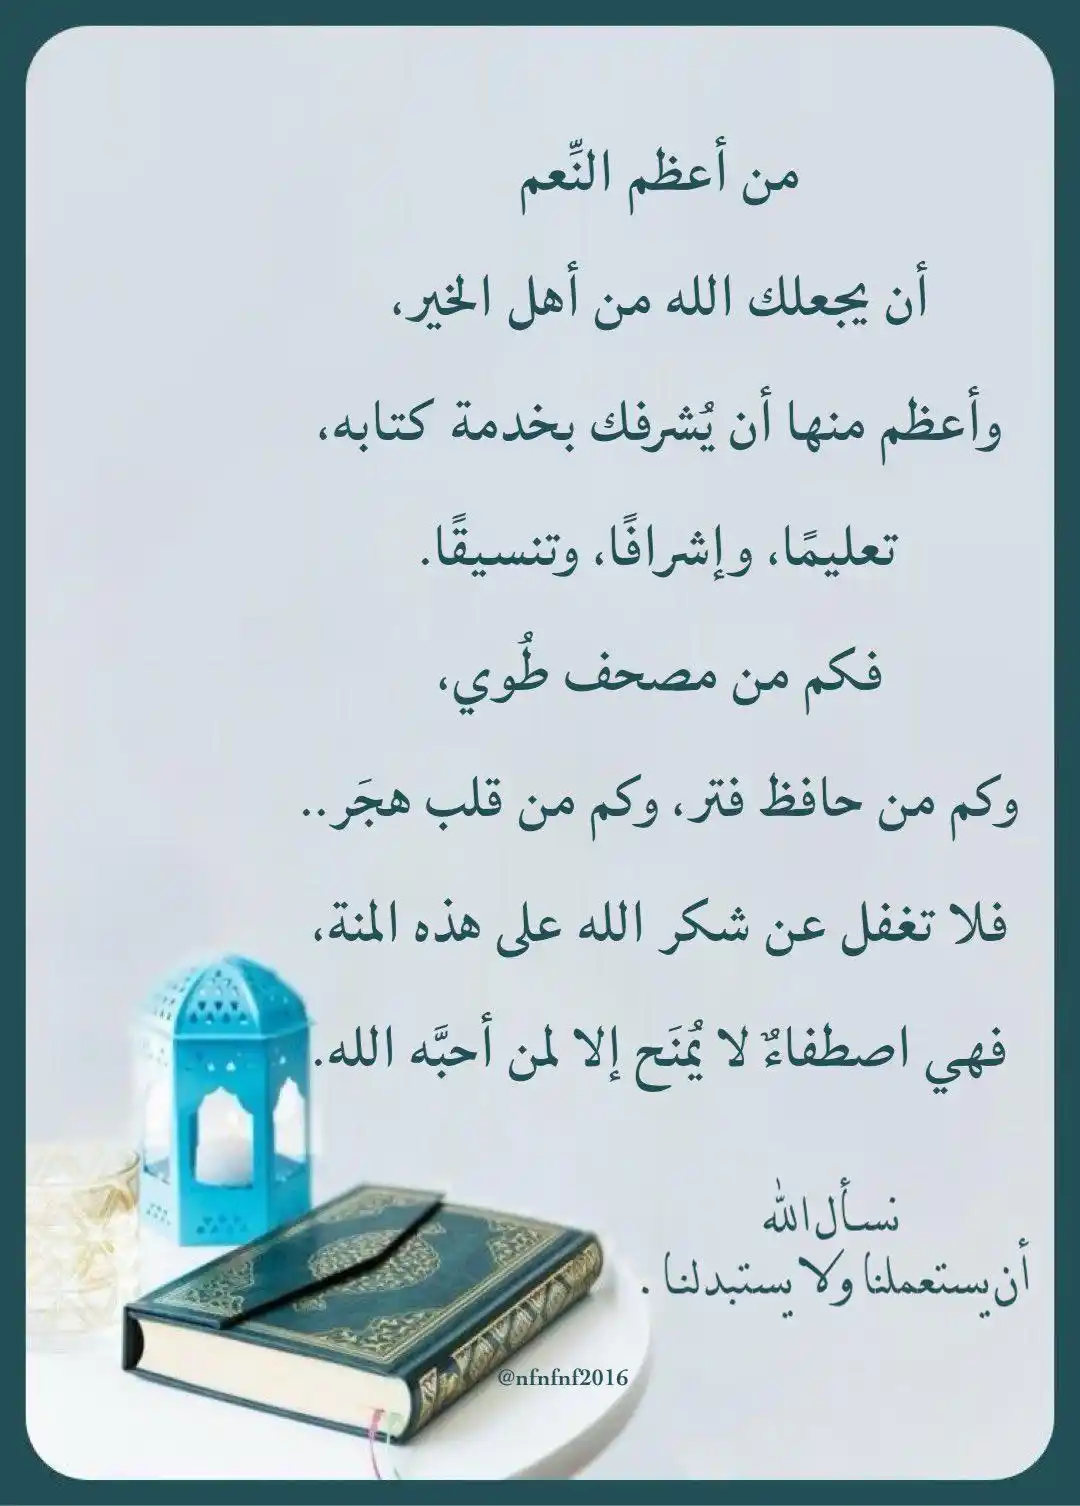 من أعظم النِّعم
أن يجعلك الله من أهل الخير،
وأعظم منها أن يُشرفك بخدمة كتابه،
تعليمًا، وإشرافًا، وتنسيقًا.
فكم من مصحف طُوي،
وكم من حافظ فتر، وكم من قلب هجَر..
فلا تغفل عن شكر الله على هذه المنة،
فهي اصطفاءٌ لا يُمنَح إلا لمن أحبَّه الله.
نسأل الله
أن يستعملنا ولا يستبدلنا .
@nfnfnf2016